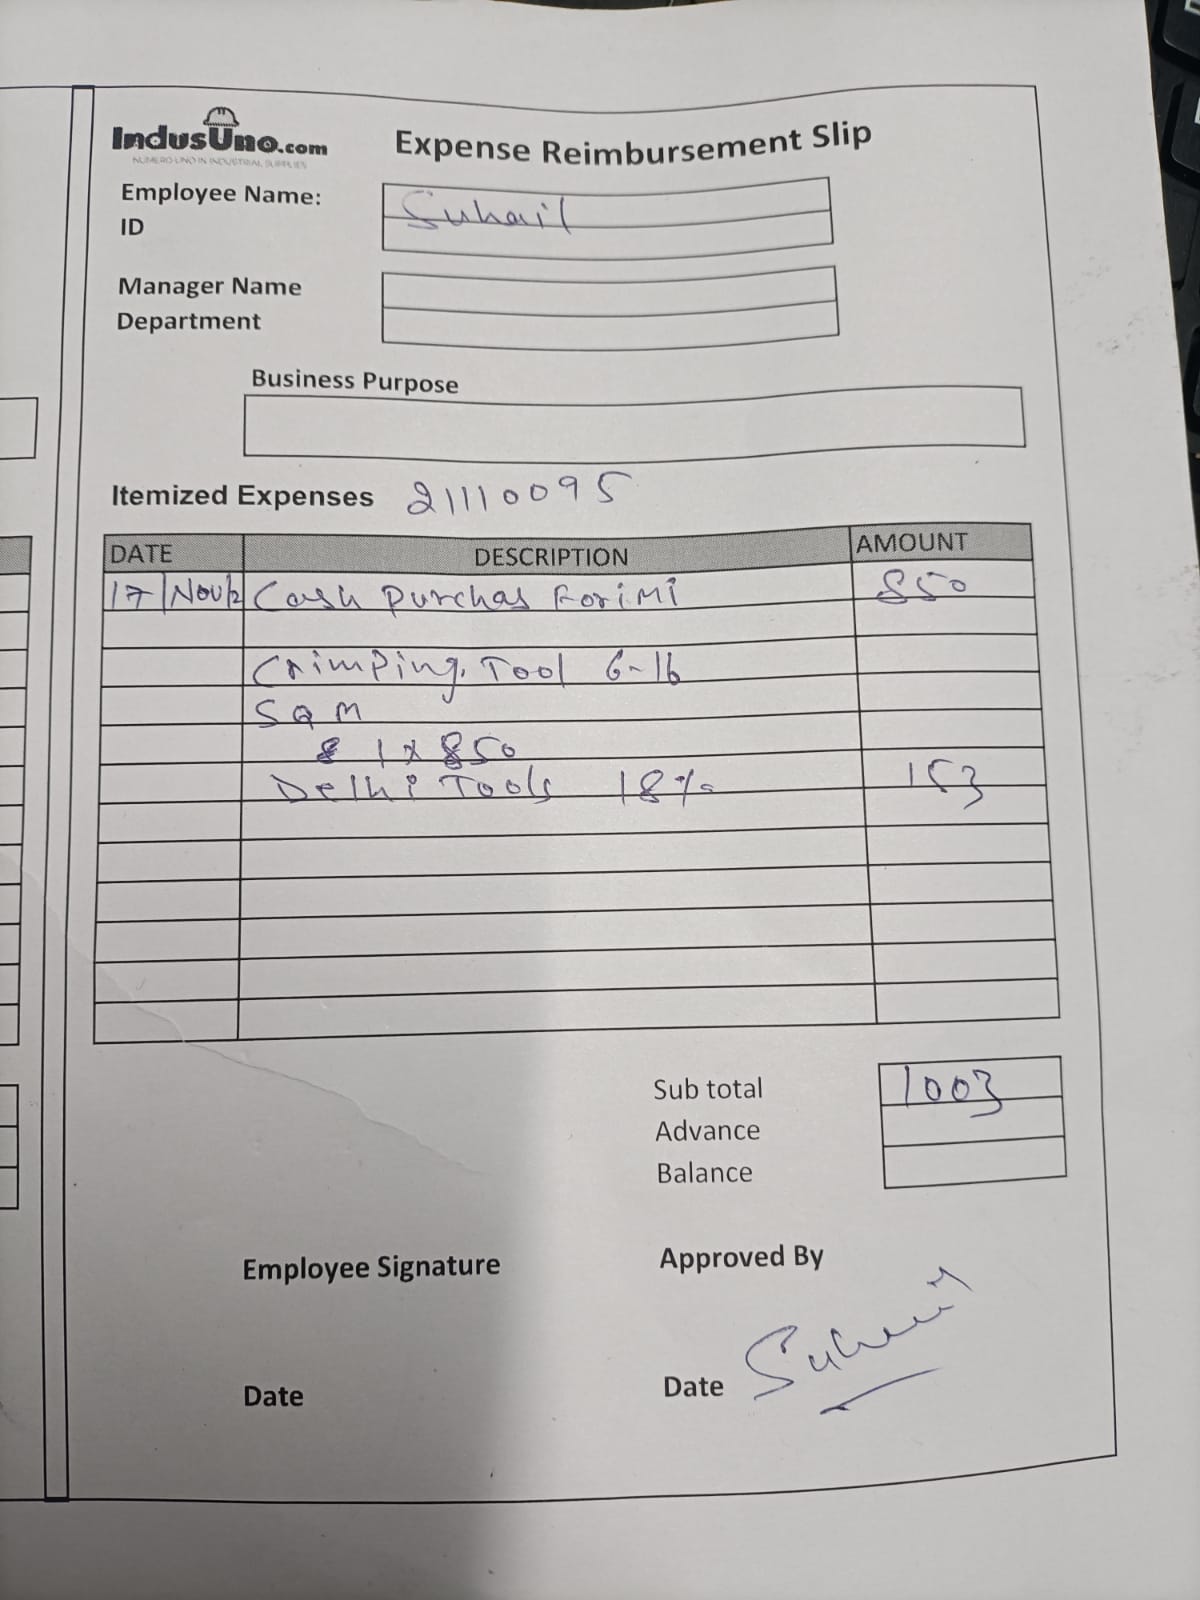 IndusUno.com
NUMERO UNO IN INDUSTRIAL SUPPLIES
Expense Reimbursement Slip
Employee Name: Suhail
ID
Manager Name
Department
Business Purpose
Itemized Expenses 21110095
DATE DESCRIPTION AMOUNT
17/Nov/2 Cash Purchas For IMI 850
Crimping Tool 6-16
SQM
1 x 850
Delhi Tools 18% 153
Sub total 1003
Advance
Balance
Employee Signature Approved By
Suhail
Date Date